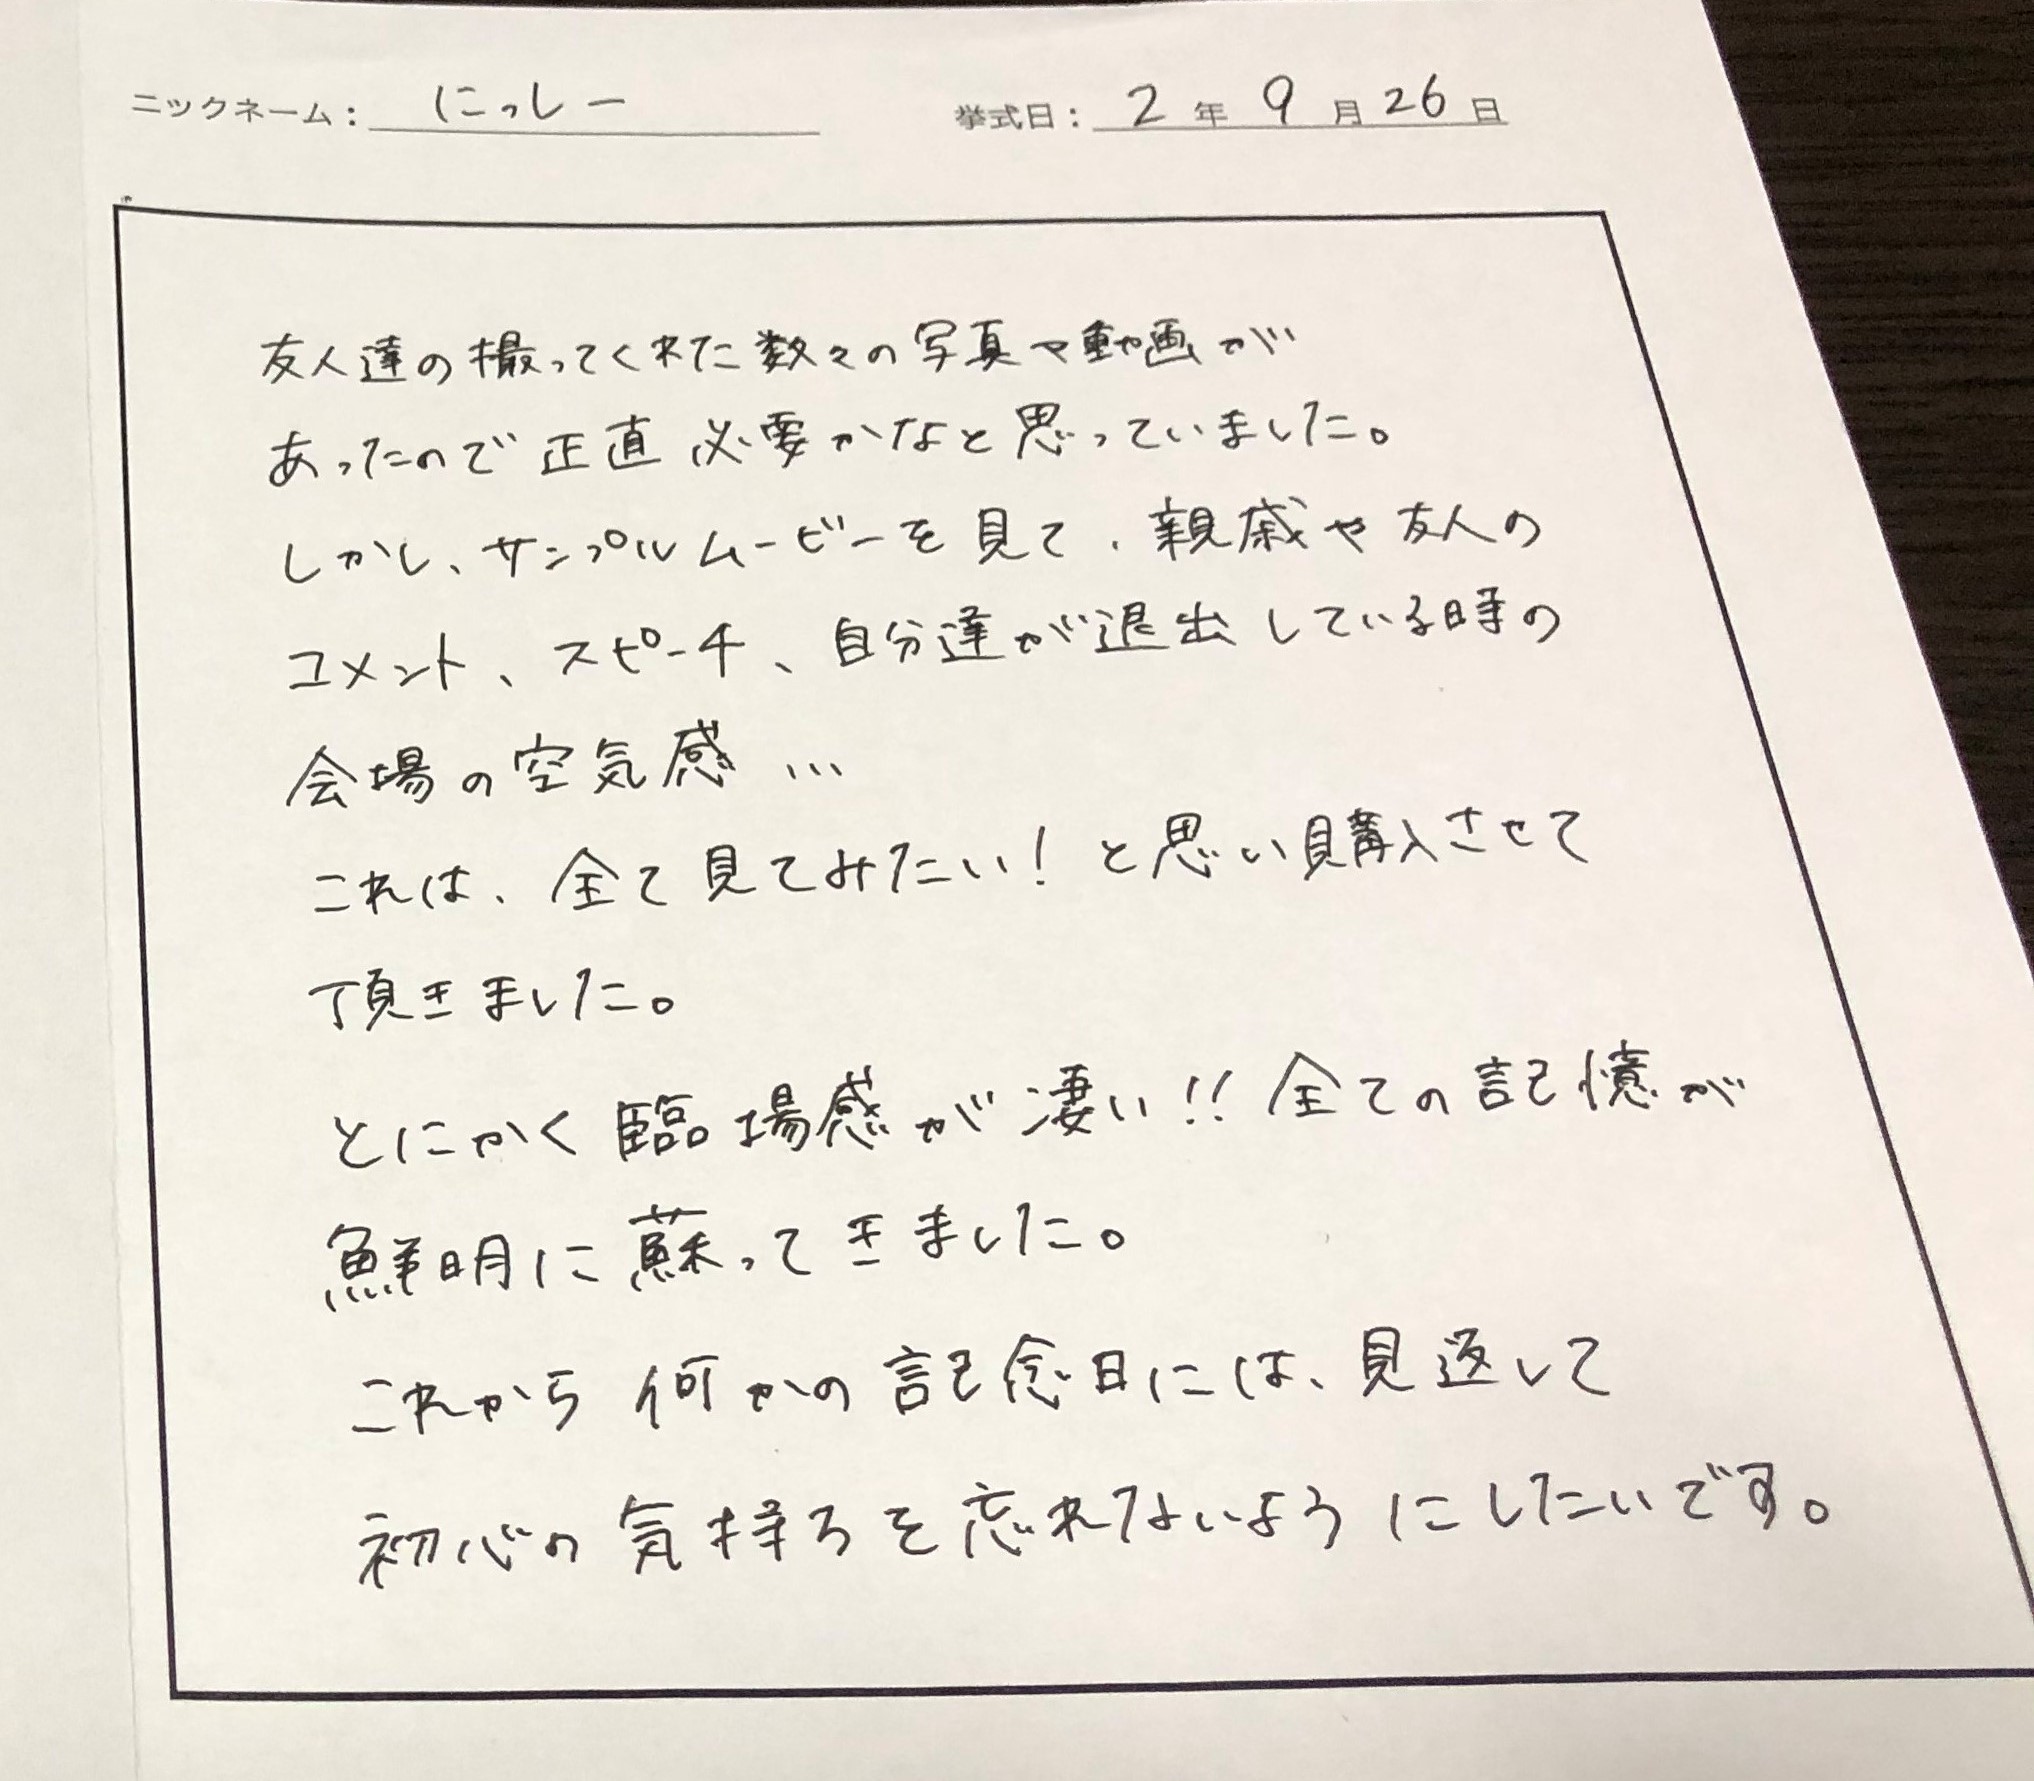 ニックネーム： にっしー 挙式日： 2 年 9 月 26 日
友人達の撮ってくれた数々の写真や動画が
あったので正直必要かなと思っていました。
しかし、サンプルムービーを見て、親戚や友人の
コメント、スピーチ、自分達が退出している時の
会場の空気感…
これは、全て見てみたい！と思い購入させて
頂きました。
とにかく臨場感が凄い!! 全ての記憶が
鮮明に蘇ってきました。
これから何かの記念日には、見返して
初心の気持ちを忘れないようにしたいです。